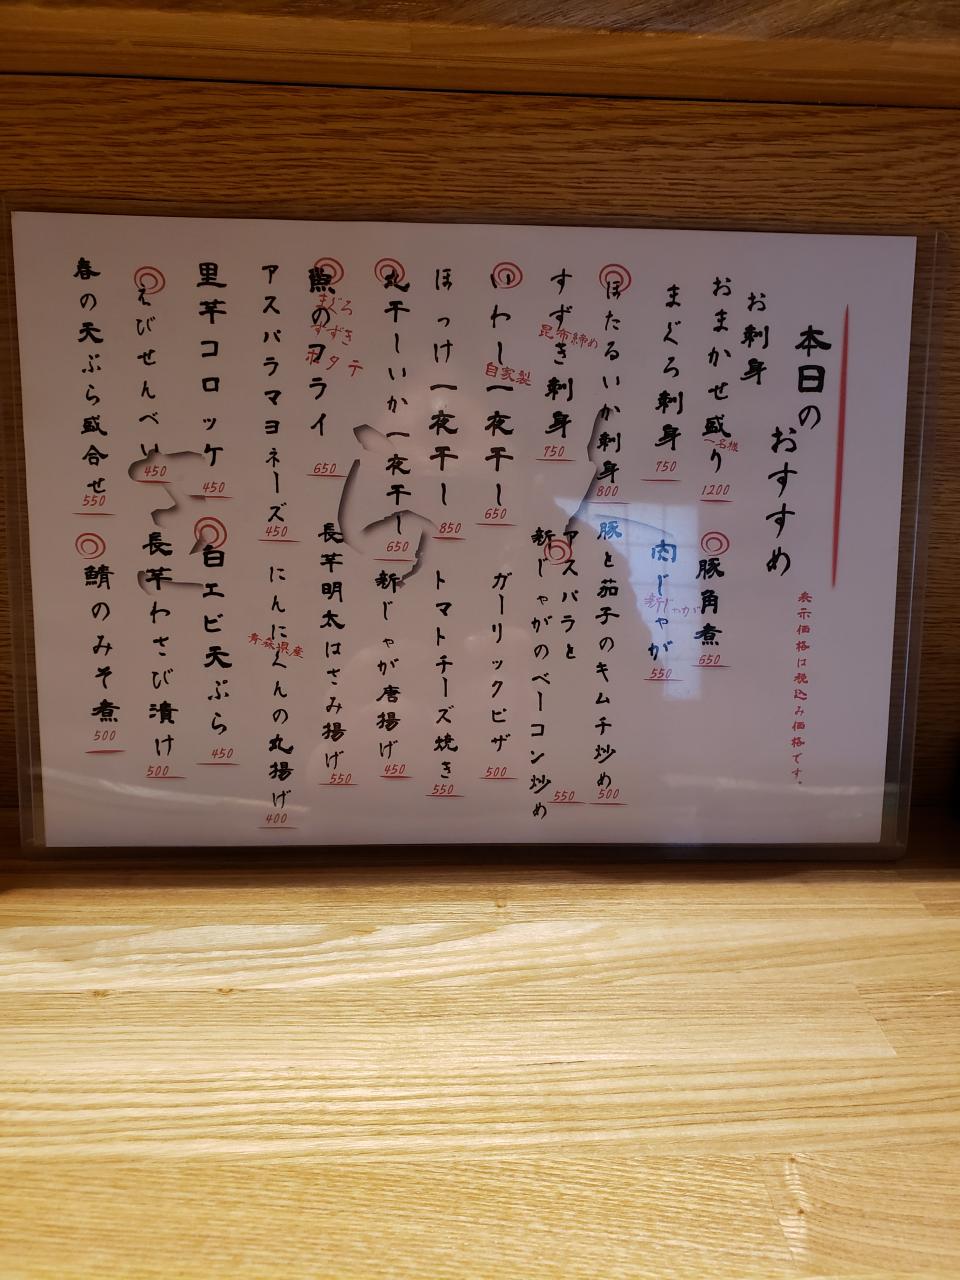 本日の
おすすめ
表示価格は税込み価格です。
お刺身
おまかせ盛り
一名様
1200
まぐろ刺身
750
ほたるいか刺身
800
すずき刺身
昆布締め
750
いわし一夜干し
自家製
650
ほっけ一夜干し
850
丸干しいか一夜干し
650
魚のフライ
まぐろ
すずき
ホタテ
650
アスパラマヨネーズ
450
里芋コロッケ
450
えびせんべい
450
春の天ぷら盛合せ
550
豚角煮
650
肉じゃが
新じゃが
550
豚と茄子のキムチ炒め
500
アスパラと
新じゃがのベーコン炒め
550
ガーリックピザ
500
トマトチーズ焼き
550
新じゃが唐揚げ
450
長芋明太はさみ揚げ
550
にんにくの丸揚げ
青森県産
400
白エビ天ぷら
450
長芋わさび漬け
500
鯖のみそ煮
500